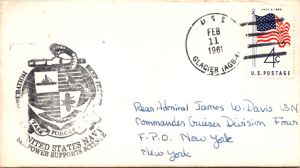 U S S
FEB
11
1961
GLACIER (AGB-4)
JULY 4 1960
4¢
U.S. POSTAGE
OPERATION
TASK FORCE
UNITED STATES NAVY
POWER SUPPORTS SCIENCE
Rear Admiral James W. Davis USN
Commander Cruiser Division Four
F.P.O. New York
New York